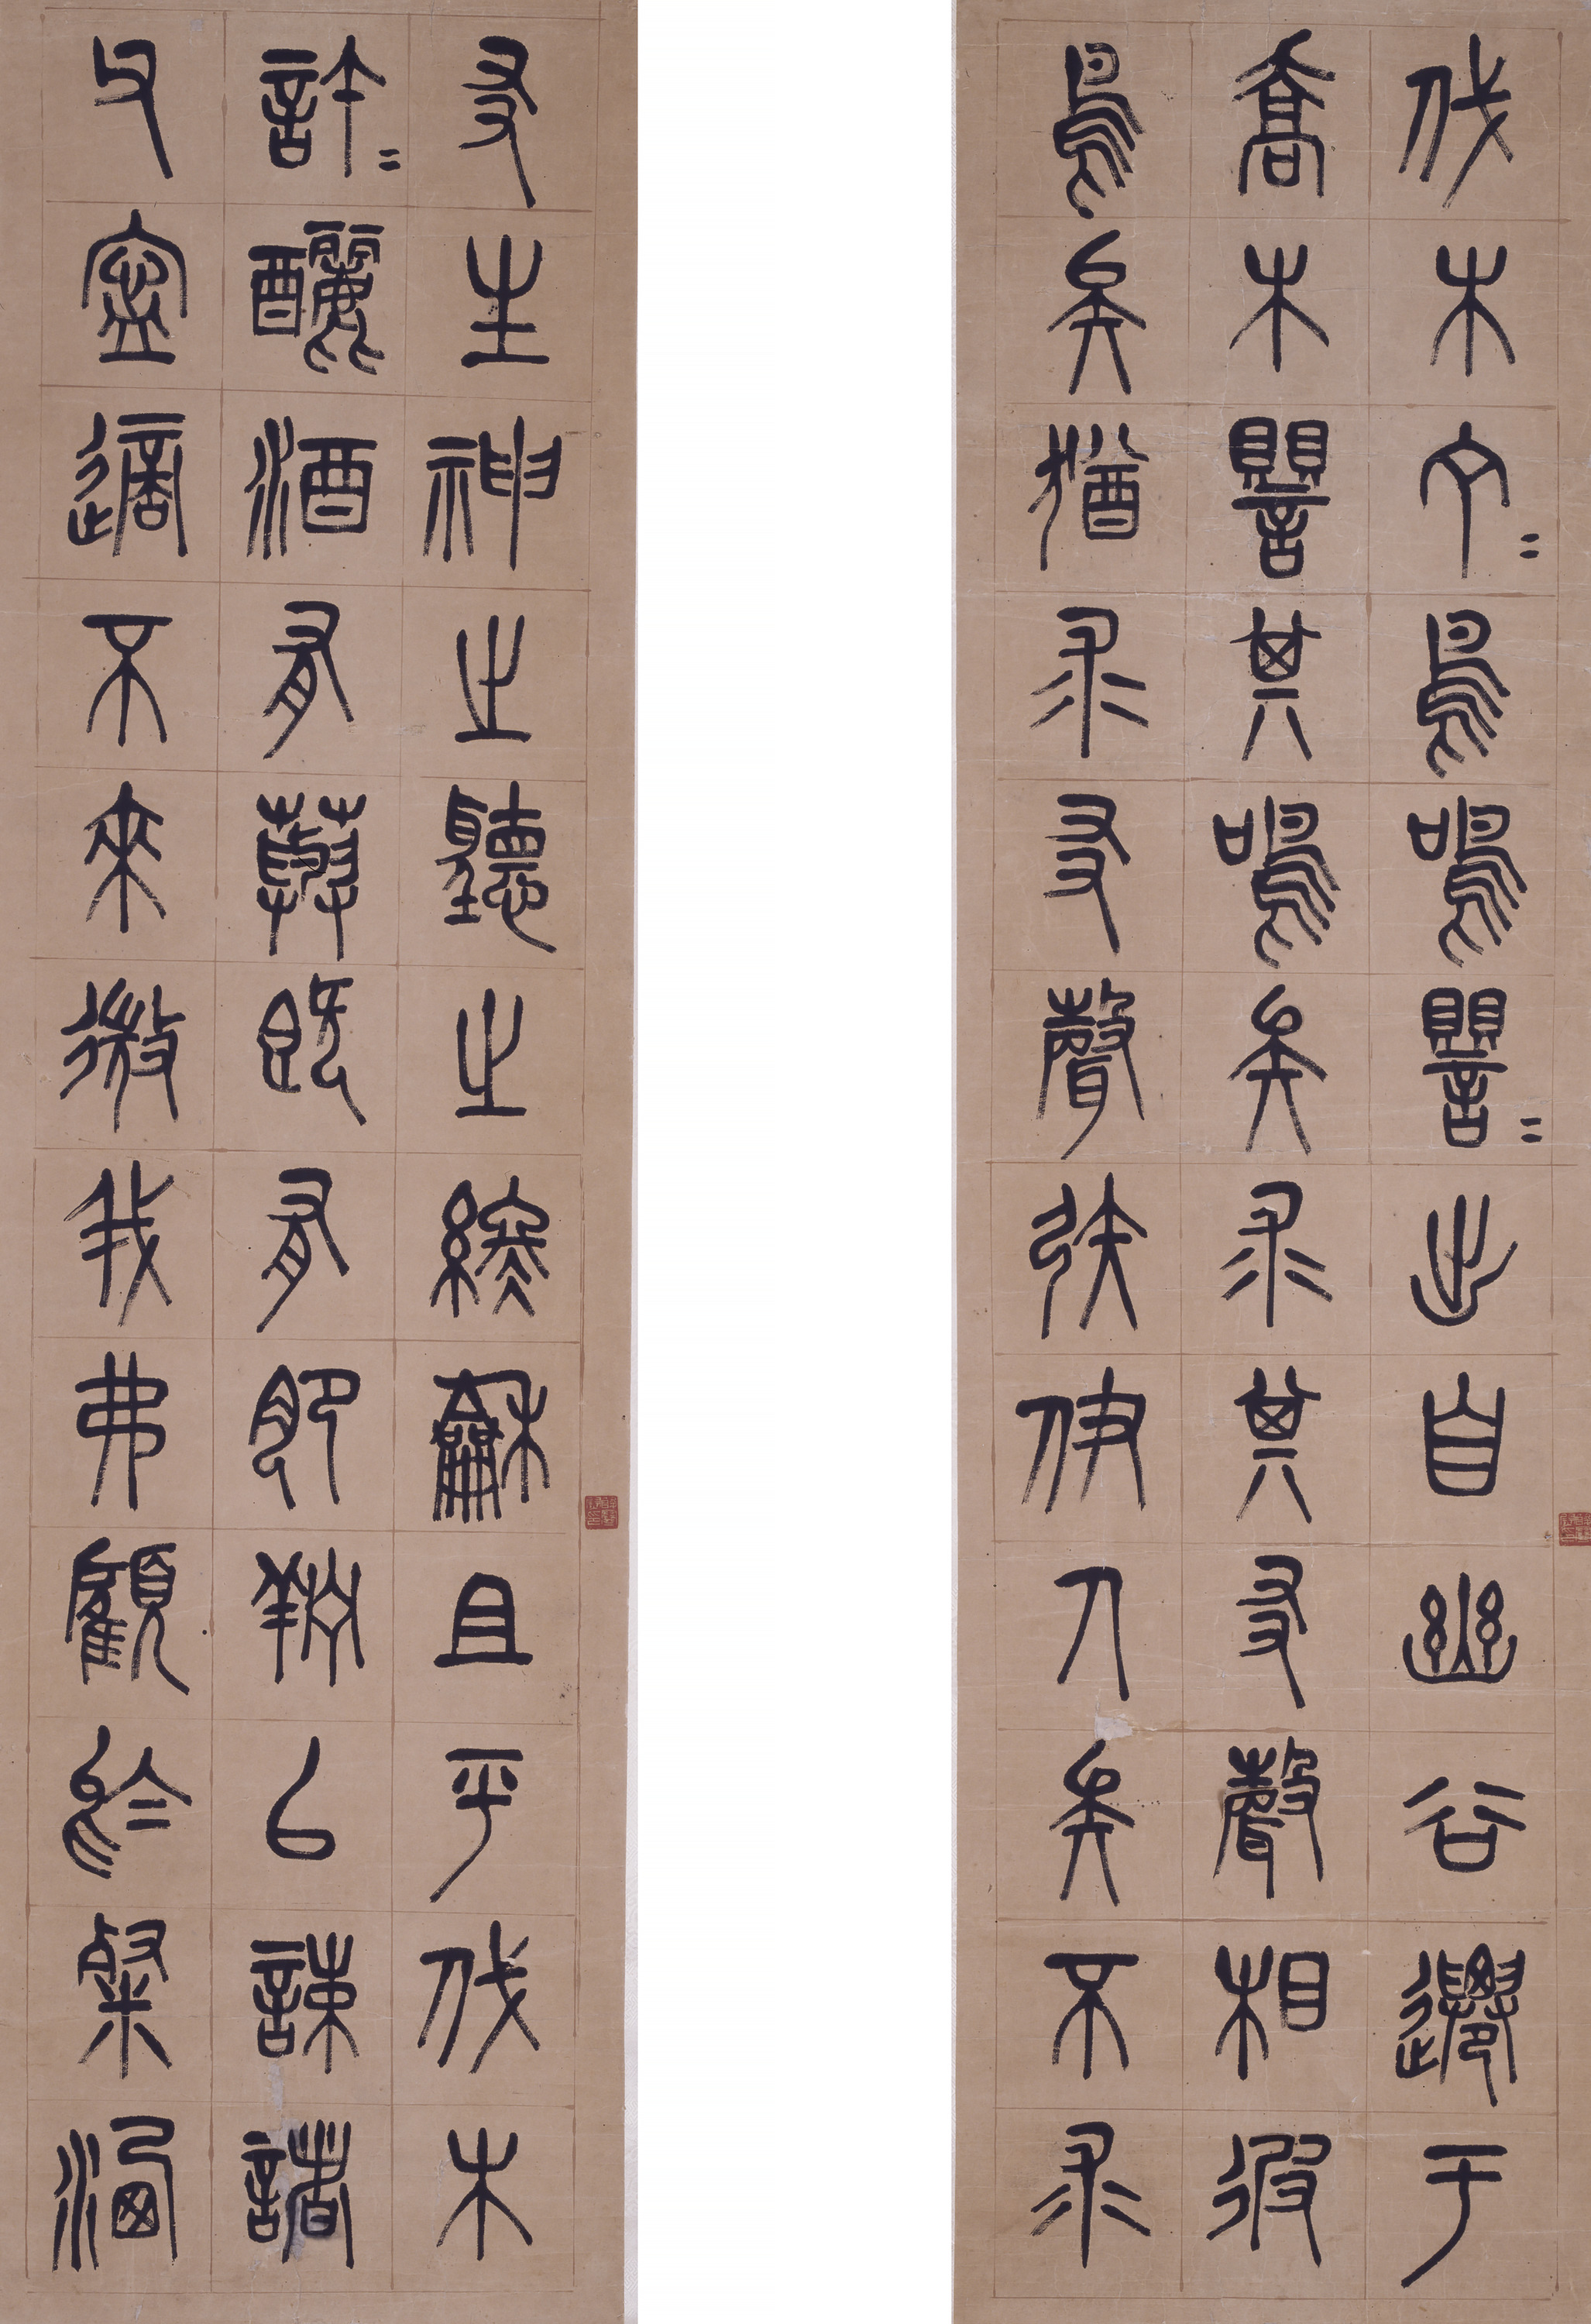 伐木丁〻鳥鳴譻〻出自幽谷遷于
喬木譻其鳴矣求其友聲相彼
鳥矣猶求友聲矧伊人矣不求
友生神之聽之終龢且平伐木
許〻釃酒有藇既有肥羜以速諸
父寧適不來微我弗顧於粲洒